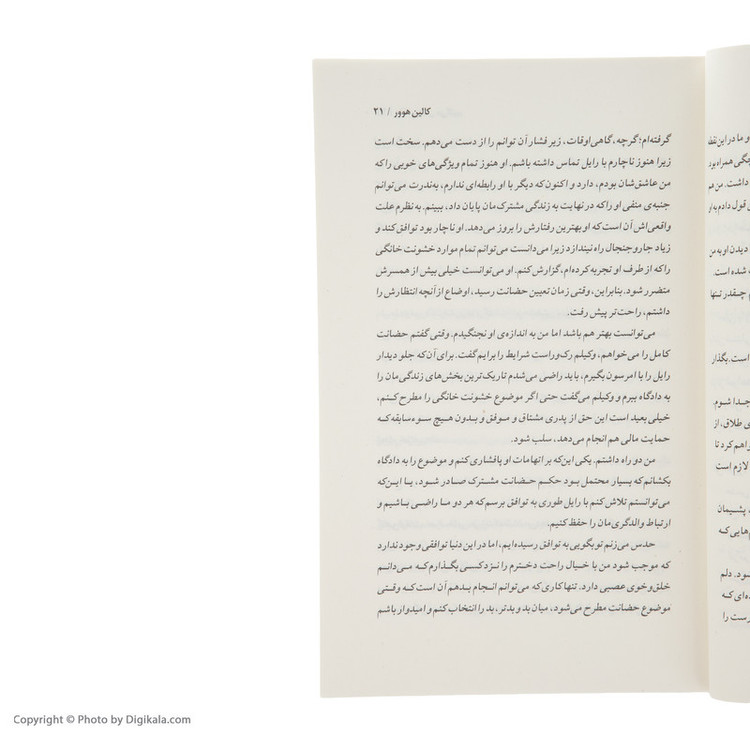 کالین هوور / ۲۱
گرفته‌ام؛ گرچه، گاهی اوقات، زیر فشار آن توانم را از دست می‌دهم. سخت است
زیرا هنوز ناچارم با رایل تماس داشته باشم. او هنوز تمام ویژگی‌های خوبی را که
من عاشق‌شان بودم، دارد و اکنون که دیگر با او رابطه‌ای ندارم، به‌ندرت می‌توانم
جنبه‌ی منفی او را که در نهایت به زندگی مشترک‌مان پایان داد، ببینم. به نظرم علت
واقعی‌اش آن است که او بهترین رفتارش را بروز می‌دهد. او ناچار بود توافق کند و
زیاد جار و جنجال راه نیندازد زیرا می‌دانست می‌توانم تمام موارد خشونت خانگی
را که از طرف او تجربه کرده‌ام، گزارش کنم. او می‌توانست خیلی بیش از همسرش
متضرر شود. بنابراین، وقتی زمان تعیین حضانت رسید، اوضاع از آنچه انتظارش را
داشتم، راحت‌تر پیش رفت.
می‌توانست بهتر هم باشد اما من به اندازه‌ی او نجنگیدم. وقتی گفتم حضانت
کامل را می‌خواهم، وکیلم رک‌وراست شرایط را برایم گفت. برای آن‌که جلو دیدار
رایل را با امرسون بگیرم، باید راضی می‌شدم تاریک‌ترین بخش‌های زندگی‌مان را
به دادگاه ببرم و وکیلم می‌گفت حتی اگر موضوع خشونت خانگی را مطرح کنم،
خیلی بعید است این حق از پدری مشتاق و موفق و بدون هیچ سوءسابقه که
حمایت مالی هم انجام می‌دهد، سلب شود.
من دو راه داشتم. یکی این‌که بر اتهامات او پافشاری کنم و موضوع را به دادگاه
بکشانم که بسیار محتمل بود حکم حضانت مشترک صادر شود، یا این‌که
می‌توانستم تلاش کنم با رایل طوری به توافق برسم که هر دو ما راضی باشیم و
ارتباط والدگری‌مان را حفظ کنیم.
حدس می‌زنم تو بگویی به توافق رسیده‌ایم، اما در این دنیا توافقی وجود ندارد
که موجب شود من با خیال راحت دخترم را نزد کسی بگذارم که می‌دانم
خلق‌وخوی عصبی دارد. تنها کاری که می‌توانم انجام بدهم آن است که وقتی
موضوع حضانت مطرح می‌شود، میان بد و بدتر، بد را انتخاب کنم و امیدوار باشم
و ما در این نقط
داشت. من هم
قول دادم به او
دیدن او به من
شده است.
چقدر تنها
است. بگذار
جدا شوم.
ی طلاق، از
اهم کرد تا
لازم است
پشیمان
هایی که
ود. دلم
ده‌ای که
رست را
Copyright © Photo by Digikala.com